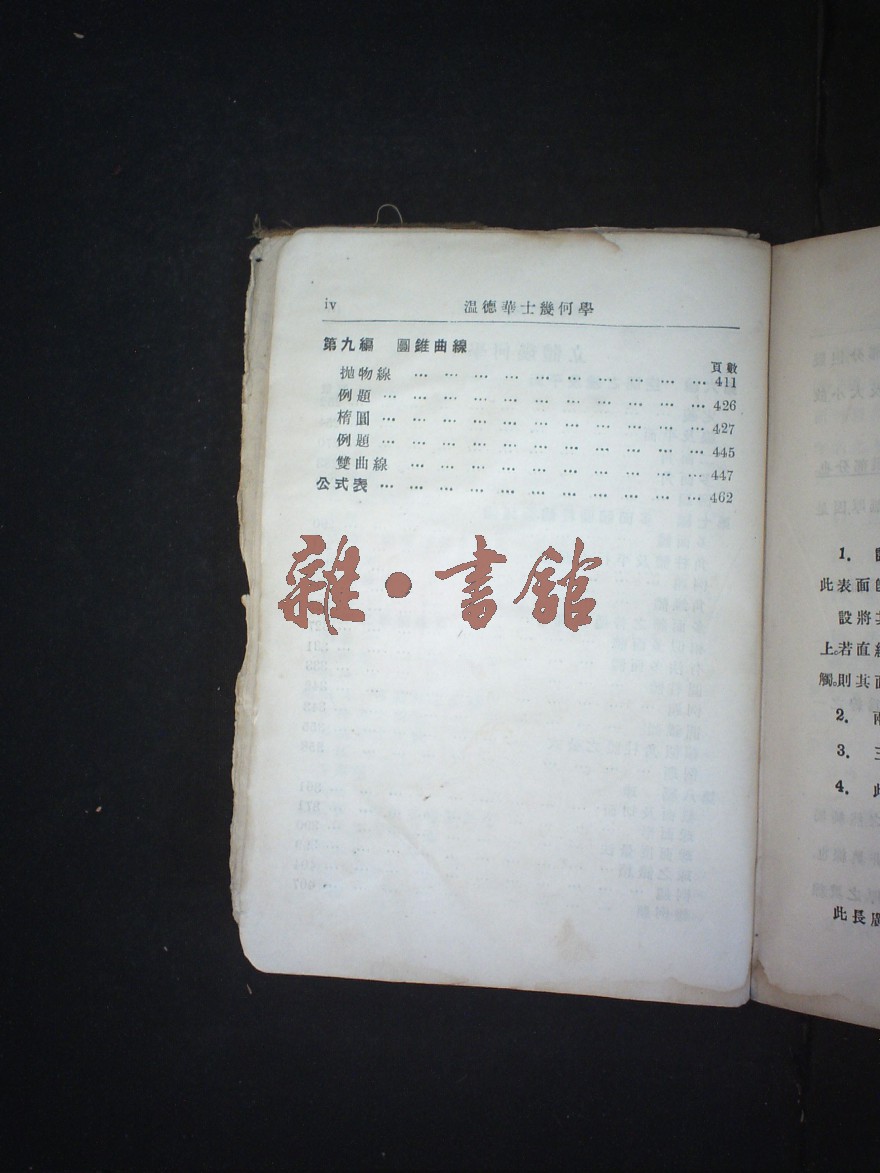 iv 温德華士幾何學
第九編 圓錐曲線
頁數
拋物線 … … … … … … … … … … 411
例題 … … … … … … … … … … … 426
楕圓 … … … … … … … … … … … 427
例題 … … … … … … … … … … … 445
雙曲線 … … … … … … … … … … 447
公式表 … … … … … … … … … … … 462
雜・書館
1.
此表面
設將
上。若直
觸。則其
2.
3.
4.
此長